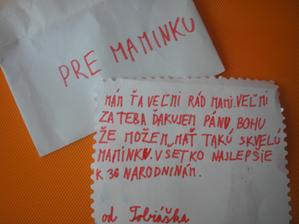 PRE MAMINKU
MÁM ŤA VEĽMI RÁD MAMI. VEĽMI
ZA TEBA ĎAKUJEM PÁNU BOHU
ŽE MOŽEM MAŤ TAKÚ SKVELÚ
MAMINKU. VŠETKO NAJLEPŠIE
K 36 NARODNINÁM.
od Tobiáška